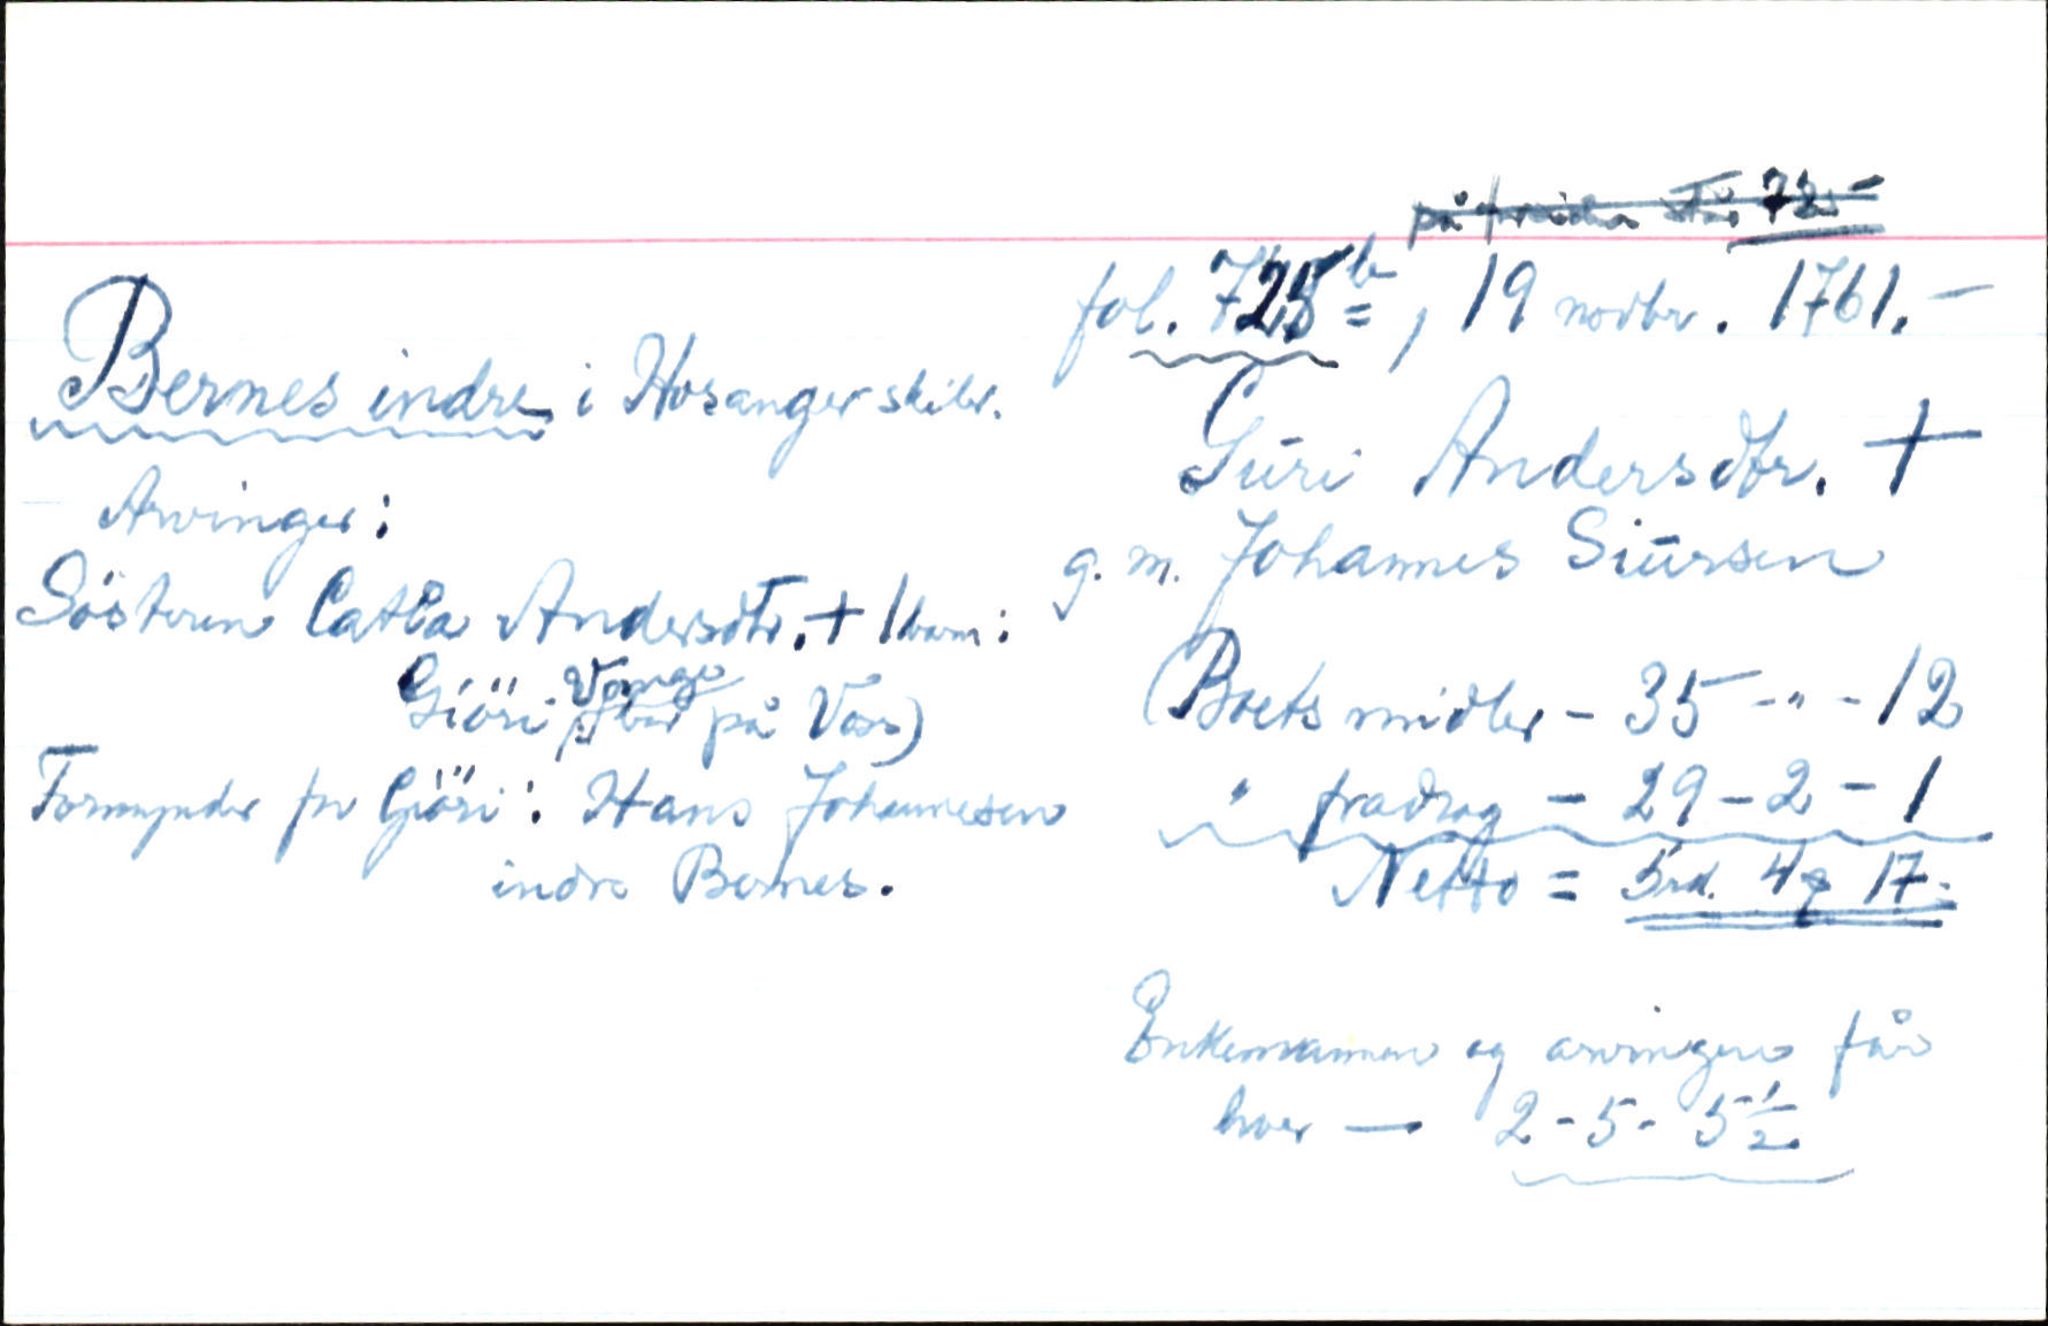 på fræsiden står 725
fol. 725b, 19 novbr. 1761.-
Bernes indre i Hosanger skibr.
Arvinger:
Søsteren Catla Andersdtr. + 1 barn:
Giöri Vange på Voss)
Formynder for Giöri: Hans Johannesen
indre Bernes.
Guri Andersdtr. +
g. m. Johannes Siursen
(Boets midler - 35 - " - 12
" fradrag - 29 - 2 - 1
Netto = 5rd. 4 17
Enkemannen og arvingen får
hver — 2 - 5 - 5 1/2